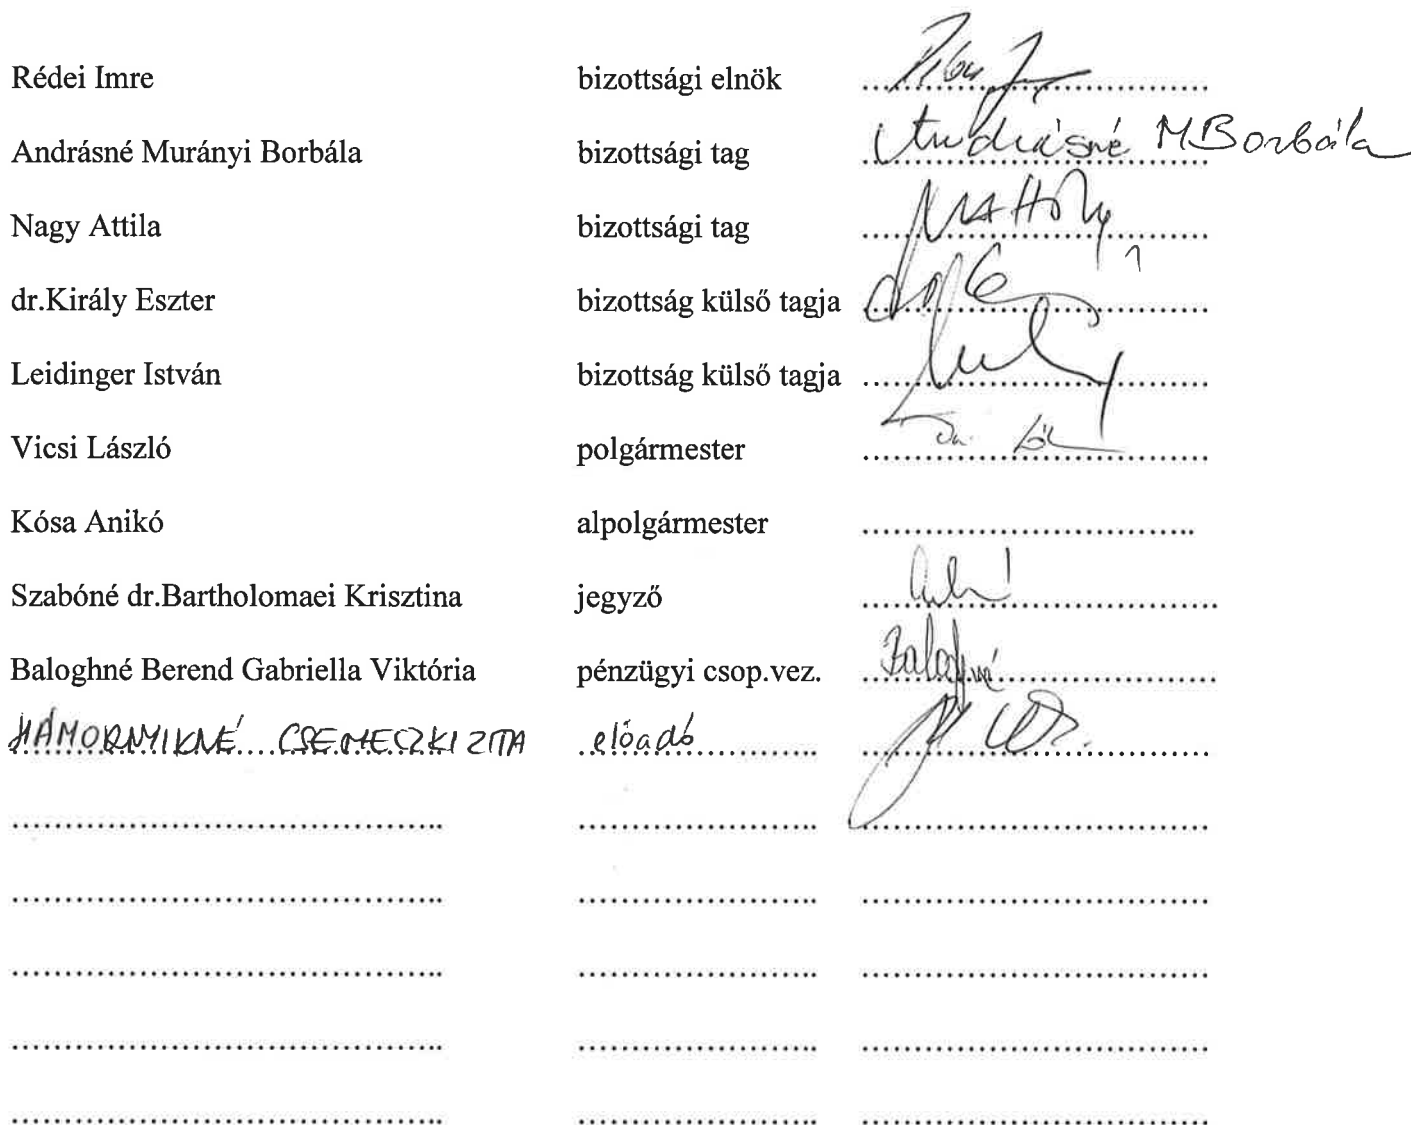 Rédei Imre bizottsági elnök
Andrásné Murányi Borbála bizottsági tag Andrásné MBorbála
Nagy Attila bizottsági tag
dr.Király Eszter bizottság külső tagja
Leidinger István bizottság külső tagja
Vicsi László polgármester
Kósa Anikó alpolgármester
Szabóné dr.Bartholomaei Krisztina jegyző
Baloghné Berend Gabriella Viktória pénzügyi csop.vez. Baloghné
HÁMORNYIKNÉ CSEMECZKI ZITA előadó